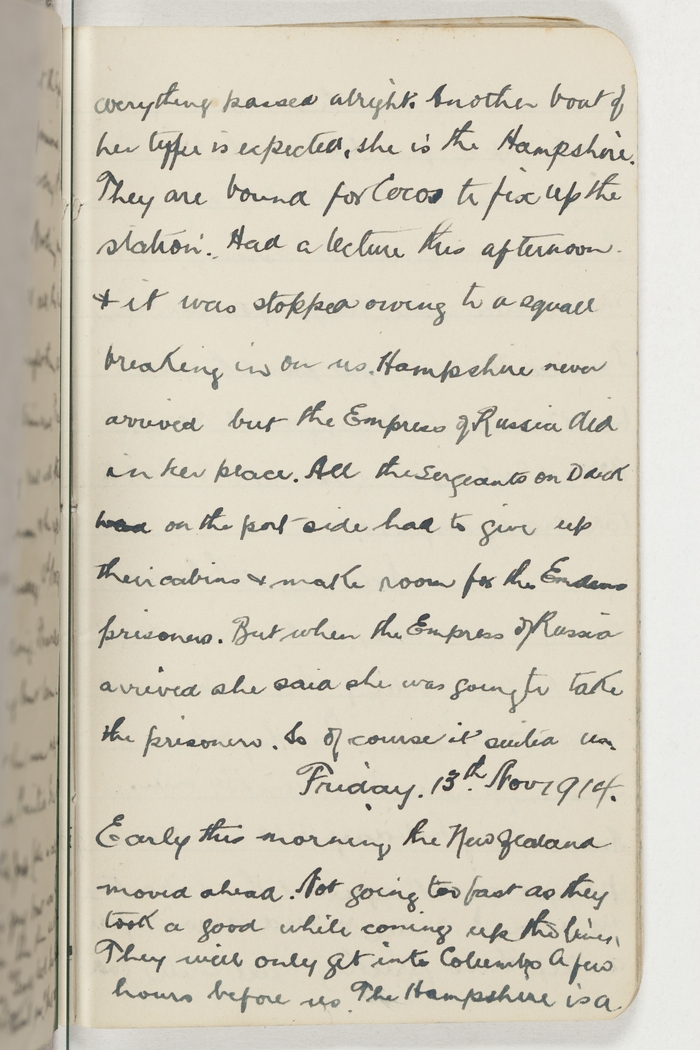 everything passed alright. Another boat of
her type is expected, she is the Hampshire.
They are bound for Cocos to fix up the
station. Had a lecture this afternoon
& it was stopped owing to a squall
breaking in on us. Hampshire never
arrived but the Empress of Russia did
in her place. All the Sergeants on Deck
on the port side had to give up
their cabins & make room for the Emdens
prisoners. But when the Empress of Russia
arrived she said she was going to take
the prisoners. So of course it suited us.
Friday. 13th. Nov 1914.
Early this morning the New Zealand
moved ahead. Not going too fast as they
took a good while coming up the lines,
They will only get into Columbo A few
hours before us. The Hampshire is a